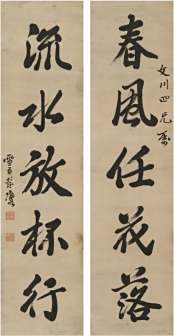 春風任花落
文川四兄屬
流水放杯行